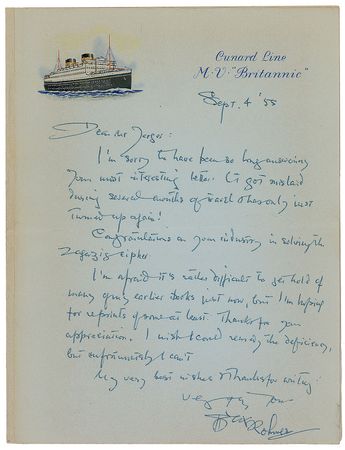 Cunard Line
M.V. "Britannic"
Sept. 4 '55
Dear Mr
I'm sorry to have been so long answering
your most interesting letter. It got mislaid
during several months of travel & has only just
turned up again!
Congratulations on your industry in solving the
Zagazig cipher
I'm afraid it's rather difficult to get hold of
many of my earlier books just now, but I'm hoping
for reprints of some at least. Thanks for your
appreciation. I wish I could remedy the deficiency,
but unfortunately I can't
My very best wishes & thanks for writing!
Sax Rohmer